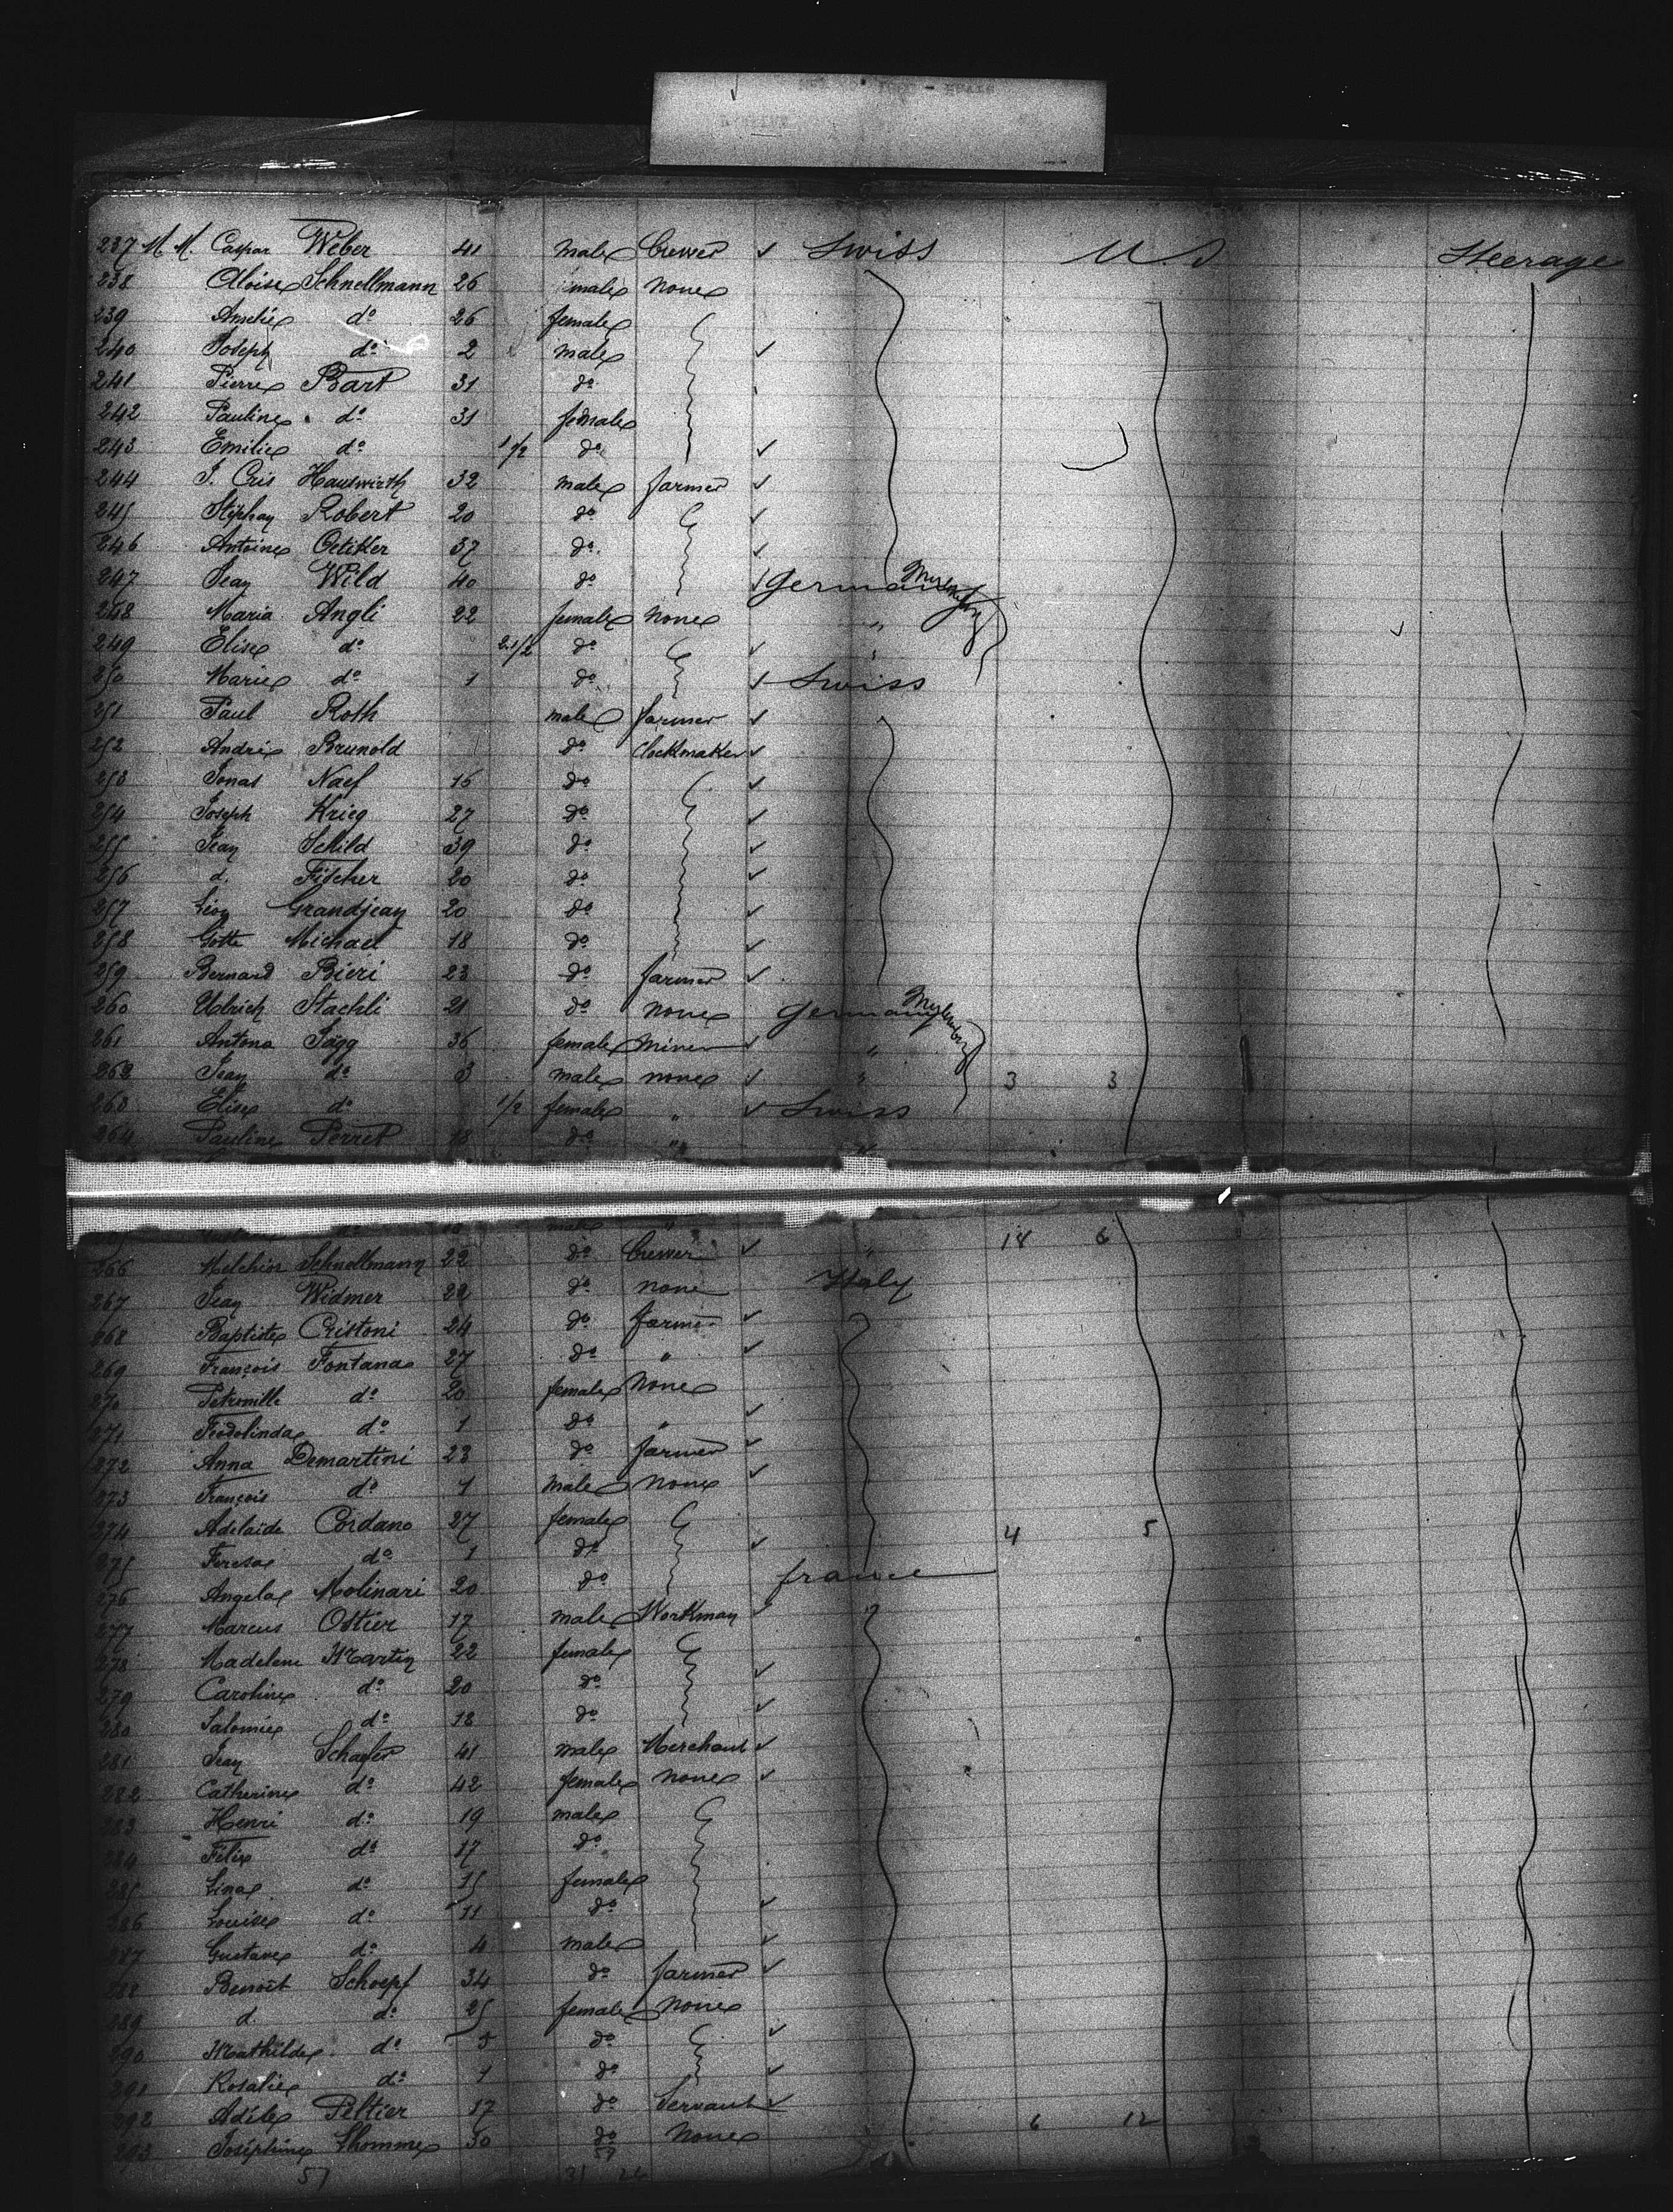 237 M. M. Caspar Weber 41 male Brewer ✓ Swiss U S Steerage
238 Aloise Schnellmann 26 male none
239 Amelie do 26 female
240 Joseph do 2 male ✓
241 Pierre Bart 31 do
242 Pauline do 31 female
243 Emilie do 1/2 do ✓
244 J. Cris Hauswirth 32 male farmer ✓
245 Stephan Robert 20 do ✓
246 Antoine Oetiker 37 do ✓
247 Jean Wild 40 do ✓ Germany
248 Maria Angli 22 female none "
249 Elise do 2 1/2 do ✓ "
250 Marie do 1 do ✓ Swiss
251 Paul Roth male farmer ✓
252 André Brunold do Clockmaker ✓
253 Jonas Naef 16 do ✓
254 Joseph Krieg 27 do ✓
255 Jean Schild 39 do ✓
256 d. Fischer 20 do ✓
257 Léon Grandjean 20 do ✓
258 Gotte Michael 18 do ✓
259 Bernard Bieri 23 do farmer ✓
260 Ulrich Staehli 21 do none Germany
261 Antona Jagg 36 female miner ✓ "
262 Jean do 3 male none ✓ " 3 3
263 Elise do 1/2 female " ✓ Swiss
264 Pauline Perret 18 do " "
male "
266 Melchior Schnellmann 22 do Brewer ✓ " 14 6
267 Jean Widmer 22 do none Italy
268 Baptiste Cristoni 24 do farmer ✓
269 François Fontana 27 do " ✓
270 Petronille do 20 female none
271 Teodolinda do 1 do " ✓
272 Anna Demartini 23 do farmer ✓
273 François do 1 male none ✓
274 Adelaïde Cordano 27 female 4 5
275 Teresa do 1 do ✓
276 Angela Molinari 20 do france
277 Marcus Ostier 17 male Workman ✓
278 Madelene Martin 22 female
279 Caroline do 20 do ✓
280 Salomie do 18 do ✓
281 Jean Schafer 41 male Merchant ✓
282 Catherine do 42 female none ✓
283 Henri do 19 male
284 Félix do 17 do
285 Lina do 15 female
286 Louise do 11 do ✓
287 Gustave do 4 male ✓
288 Benoit Schoepf 34 do farmer ✓
289 d. do 25 female none
290 Mathilde do 5 do ✓
291 Rosalie do 1 do ✓
292 Adèle Peltier 17 do Servant ✓ 6 12
293 Joséphine Lhomme 30 do none
57 31 26